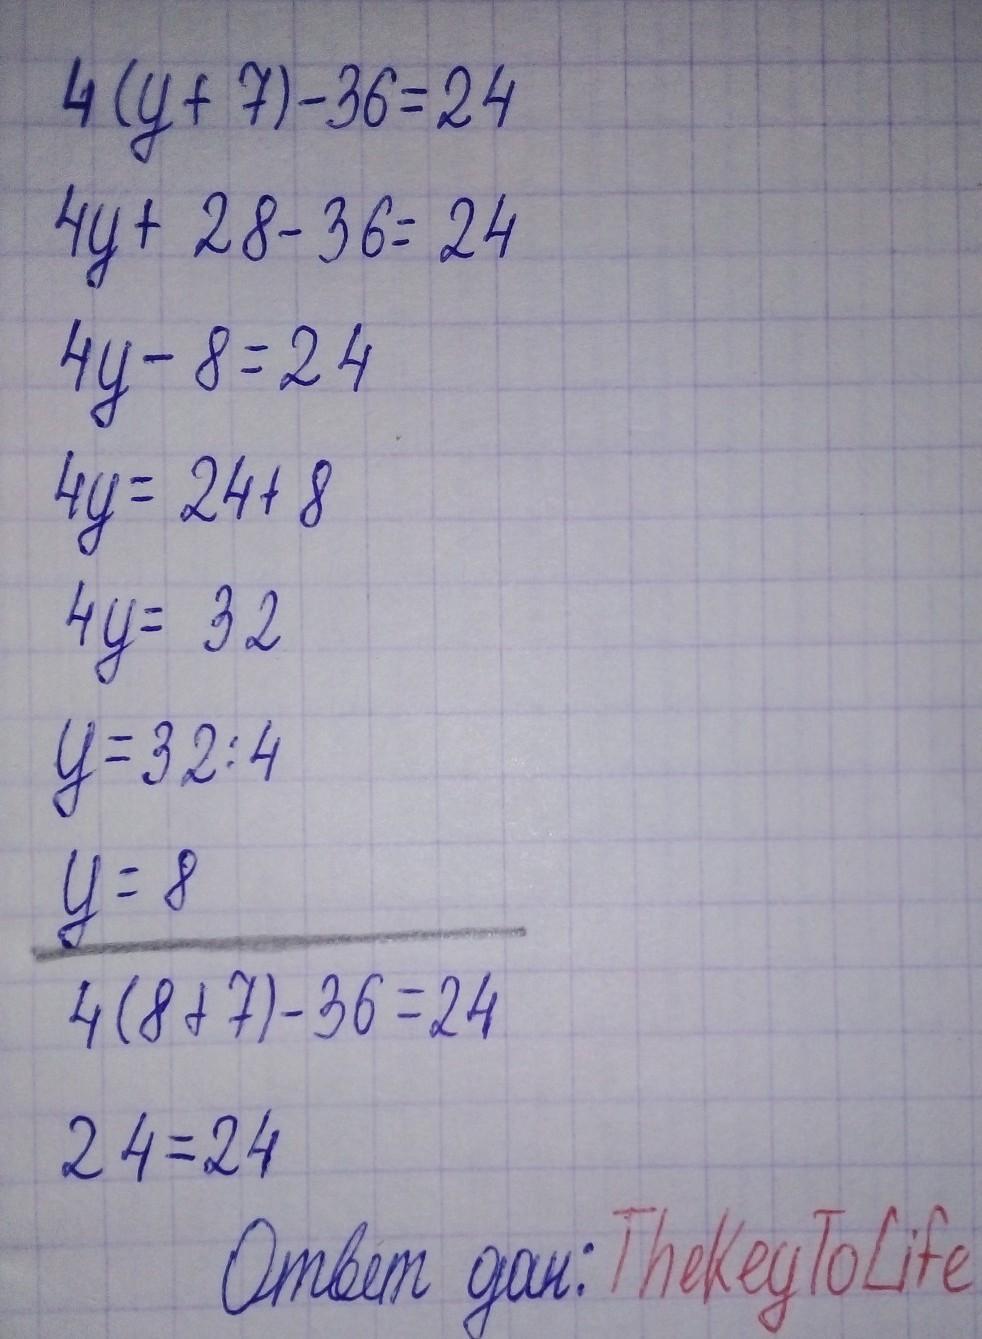 4(y+7)-36=24
4y+28-36=24
4y-8=24
4y=24+8
4y=32
y=32:4
y=8
4(8+7)-36=24
24=24
Ответ дан: TheKeyToLife